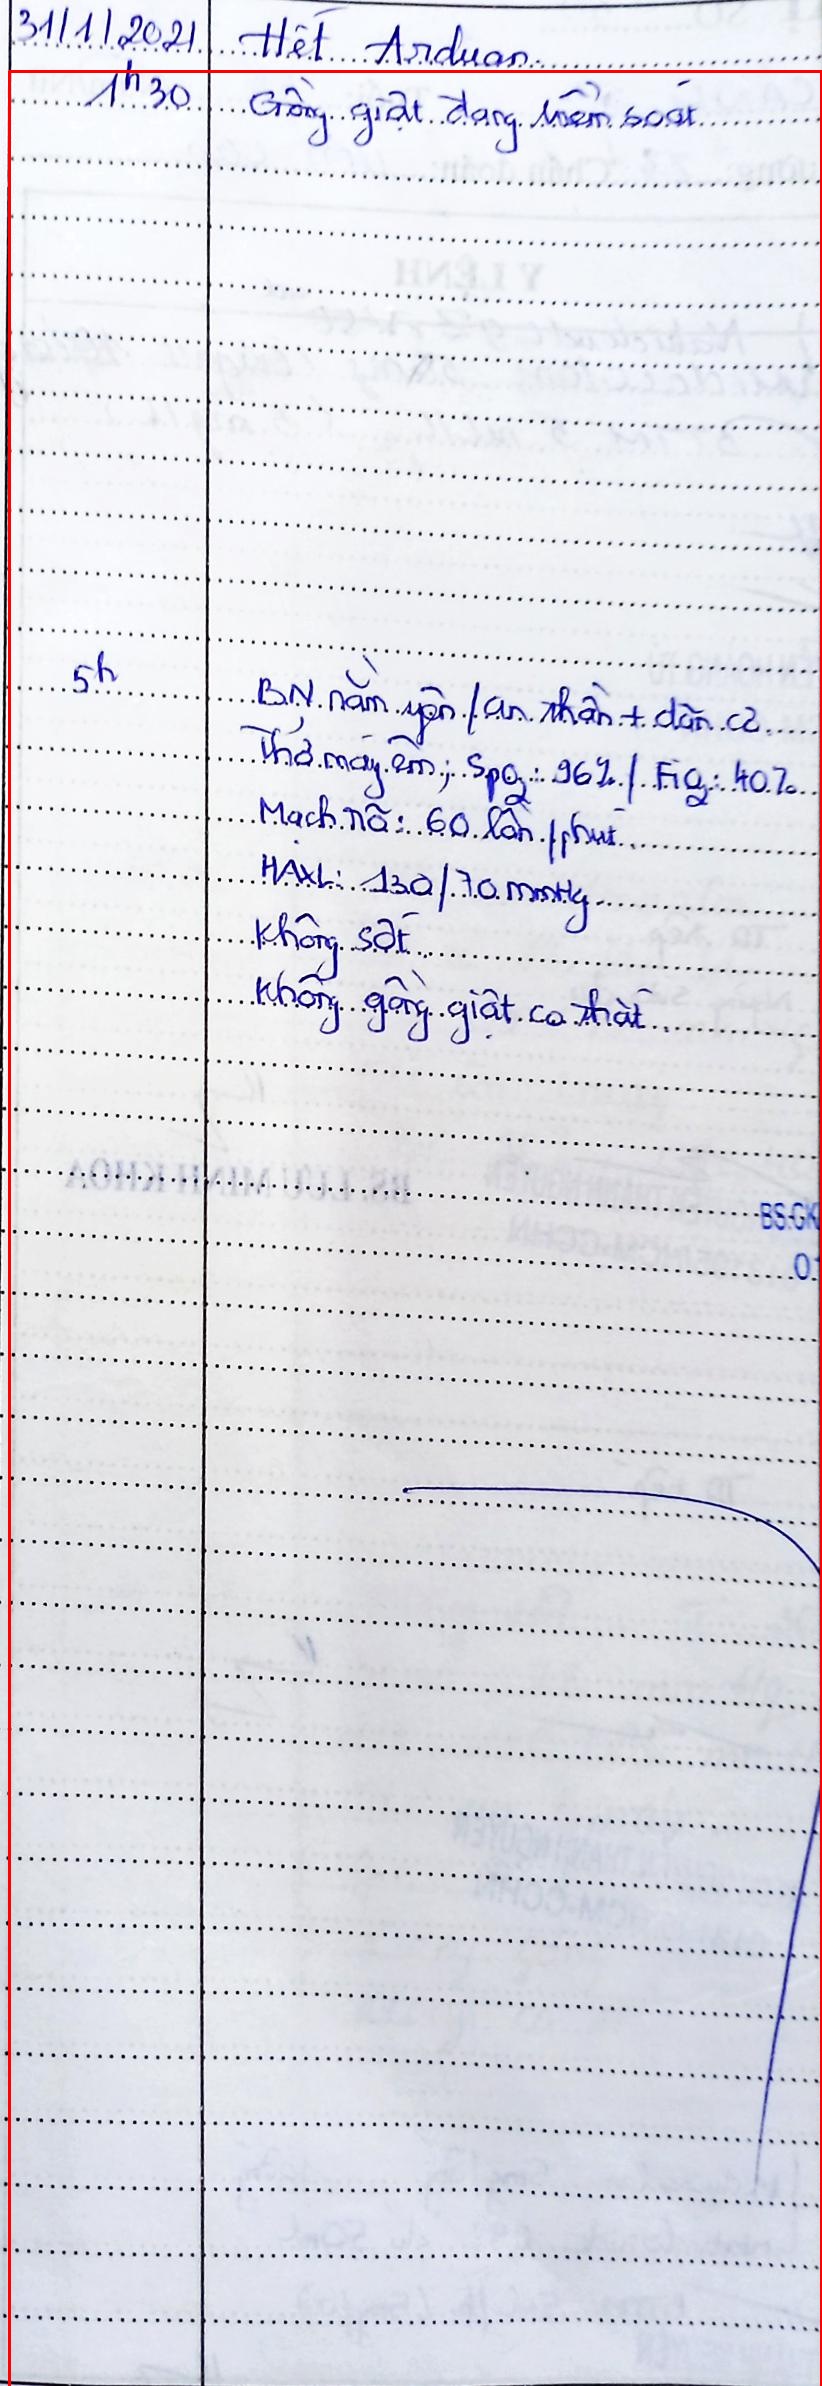 31/1/2021 Hết Arduan.
1h30 Gồng giật đang kiểm soát
5h BN nằm yên / an thần + dãn cơ
Thở máy êm; SpO2: 96% / FiO2: 40%
Mạch rõ: 60 lần / phút
HAXL: 130/70 mmHg
Không sốt
Không gồng giật co thắt
BS.CK
BS. LƯU MINH KHOA